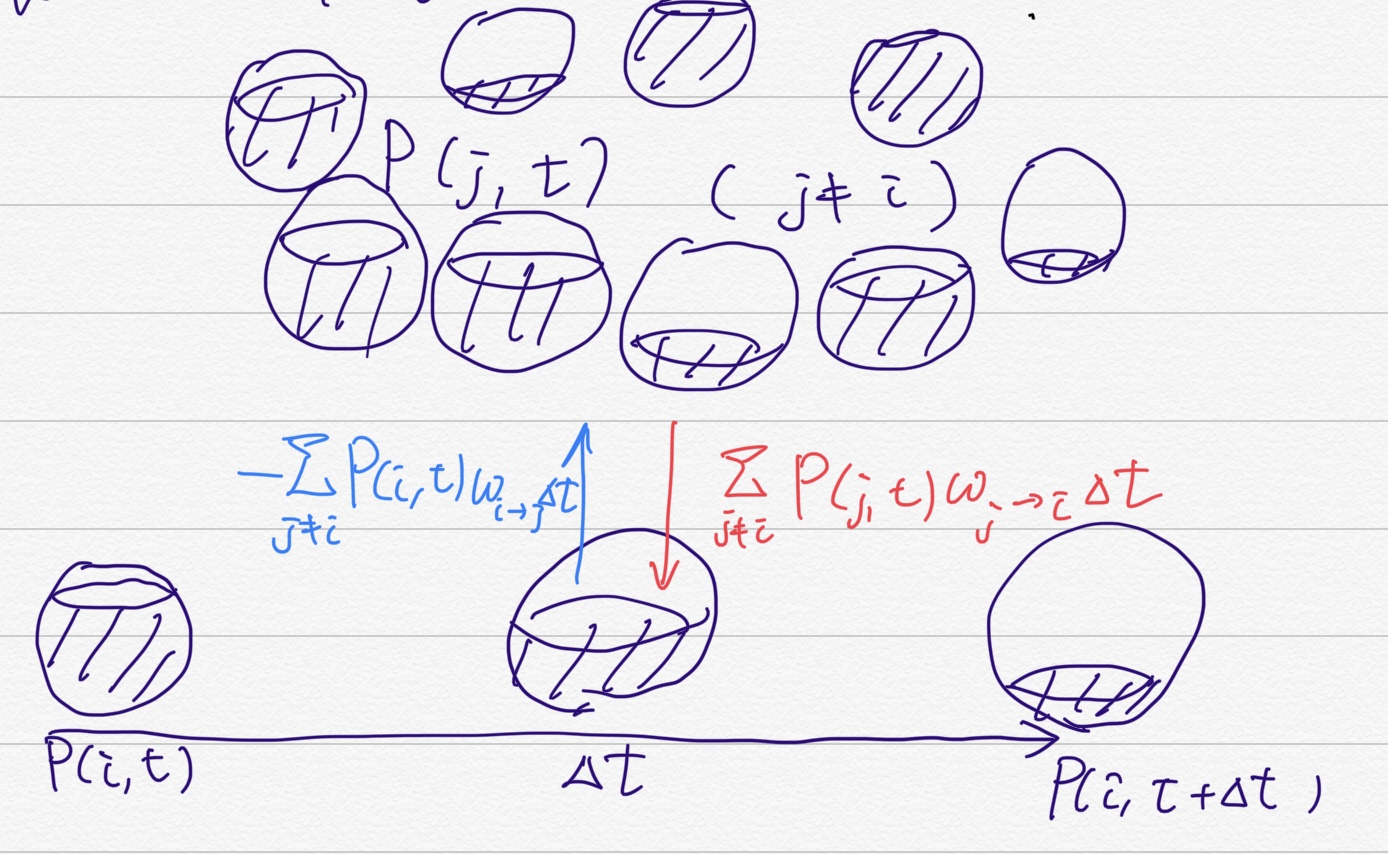 P(j, t) (j ≠ i)
-∑_{j≠i} P(i,t) ω_{i→j} Δt
∑_{j≠i} P(j,t) ω_{j→i} Δt
P(i,t)
Δt
P(i, t+Δt)